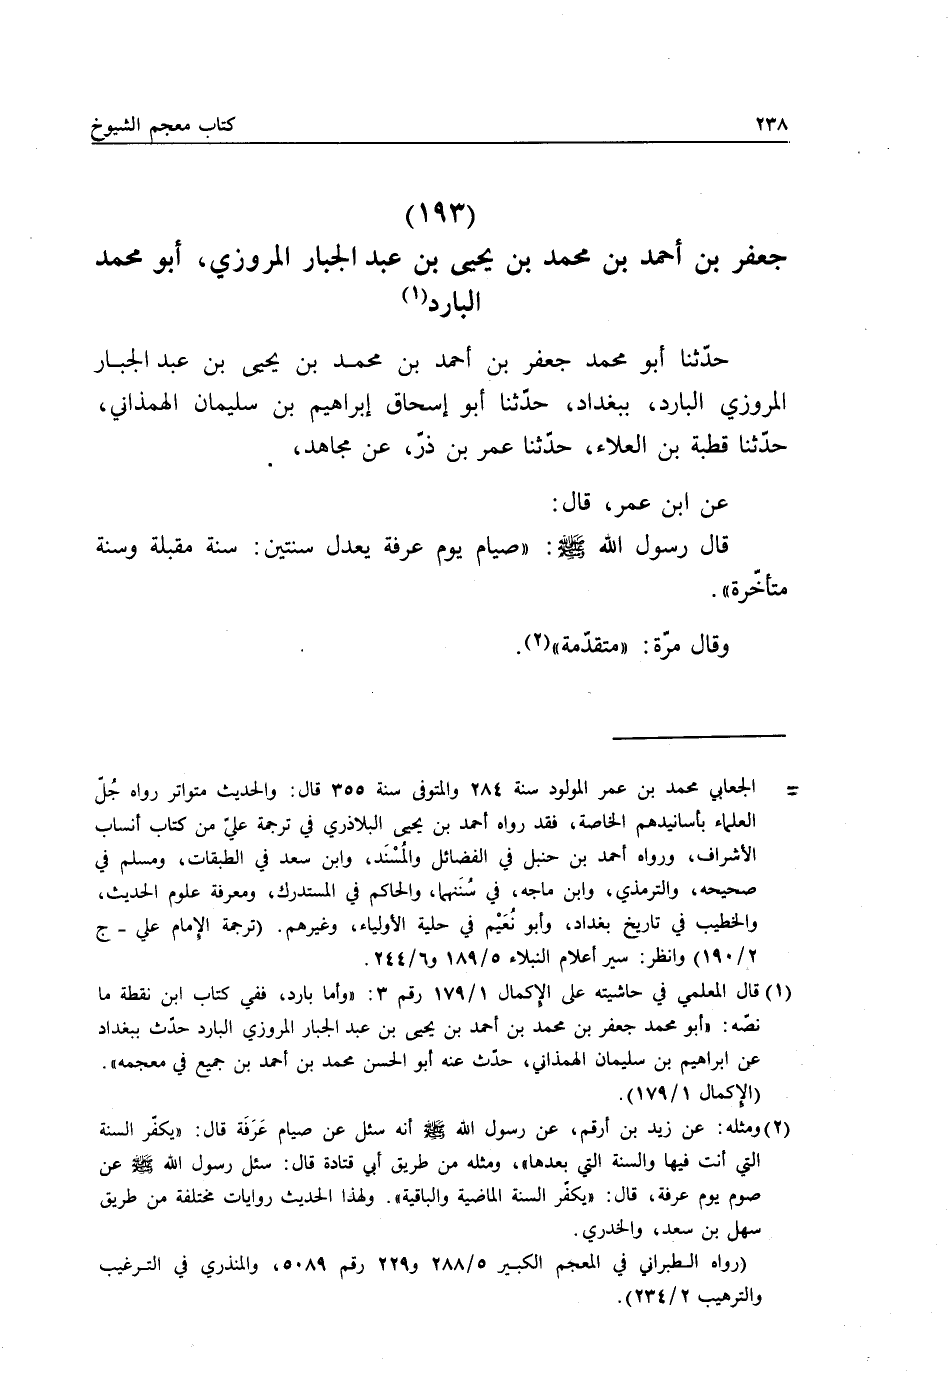 ٢٣٨ كتاب معجم الشيوخ
(١٩٣)
جعفر بن أحمد بن محمد بن يحيى بن عبد الجبار المروزي، أبو محمد
البارد(١)
حدّثنا أبو محمد جعفر بن أحمد بن محمـد بن يحيى بن عبد الجبـار
المروزي البارد، ببغداد، حدّثنا أبو إسحاق إبراهيم بن سليمان الهمذاني،
حدّثنا قطبة بن العلاء، حدّثنا عمر بن ذرّ، عن مجاهد،
عن ابن عمر، قال:
قال رسول الله ﷺ: «صيام يوم عرفة يعدل سنتين: سنة مقبلة وسنة
متأخّرة».
وقال مرّة: «متقدّمة»(٢).
= الجعابي محمد بن عمر المولود سنة ٢٨٤ والمتوفى سنة ٣٥٥ قال: والحديث متواتر رواه جُلّ
العلماء بأسانيدهم الخاصة، فقد رواه أحمد بن يحيى البلاذري في ترجمة عليّ من كتاب أنساب
الأشراف، ورواه أحمد بن حنبل في الفضائل والمُسْنَد، وابن سعد في الطبقات، ومسلم في
صحيحه، والترمذي، وابن ماجه، في سُنَنهما، والحاكم في المستدرك، ومعرفة علوم الحديث،
والخطيب في تاريخ بغداد، وأبو نُعَيْم في حلية الأولياء، وغيرهم. (ترجمة الإمام علي - ج
١٩٠/٢) وانظر: سير أعلام النبلاء ١٨٩/٥ و٢٤٤/٦.
(١) قال المعلمي في حاشيته على الإكمال ١٧٩/١ رقم ٣: «وأما بارد، ففي كتاب ابن نقطة ما
نصّه: «أبو محمد جعفر بن محمد بن أحمد بن يحيى بن عبد الجبار المروزي البارد حدّث ببغداد
عن ابراهيم بن سليمان الهمذاني، حدّث عنه أبو الحسن محمد بن أحمد بن جميع في معجمه».
(الإكمال ١٧٩/١).
(٢) ومثله: عن زيد بن أرقم، عن رسول الله ﷺ أنه سئل عن صيام عَرَفَة قال: «يكفّر السنة
التي أنت فيها والسنة التي بعدها»، ومثله من طريق أبي قتادة قال: سئل رسول الله ﷺ عن
صوم يوم عرفة، قال: «يكفّر السنة الماضية والباقية». ولهذا الحديث روايات مختلفة من طريق
سهل بن سعد، والخدري.
(رواه الـطبراني في المعجم الكبـير ٢٨٨/٥ و٢٢٩ رقم ٥٠٨٩، والمنذري في التـرغيب
والترهيب ٢٣٤/٢).